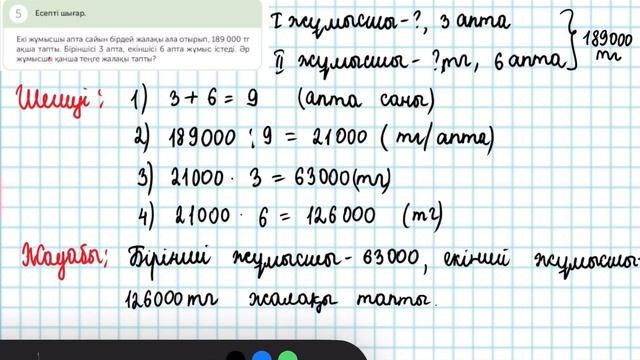 5 Есепті шығар.
Екі жұмысшы апта сайын бірдей жалақы ала отырып, 189 000 тг
ақша тапты. Біріншісі 3 апта, екіншісі 6 апта жұмыс істеді. Әр
жұмысшы қанша теңге жалақы тапты?
I жұмысшы - ?, 3 апта
II жұмысшы - ?тг, 6 апта
189000 тг
Шешуі:
1) 3 + 6 = 9 (апта саны)
2) 189000 : 9 = 21000 (тг/апта)
3) 21000 · 3 = 63000 (тг)
4) 21000 · 6 = 126000 (тг)
Жауабы: Бірінші жұмысшы - 63000, екінші жұмысшы -
126000 тг жалақы тапты.